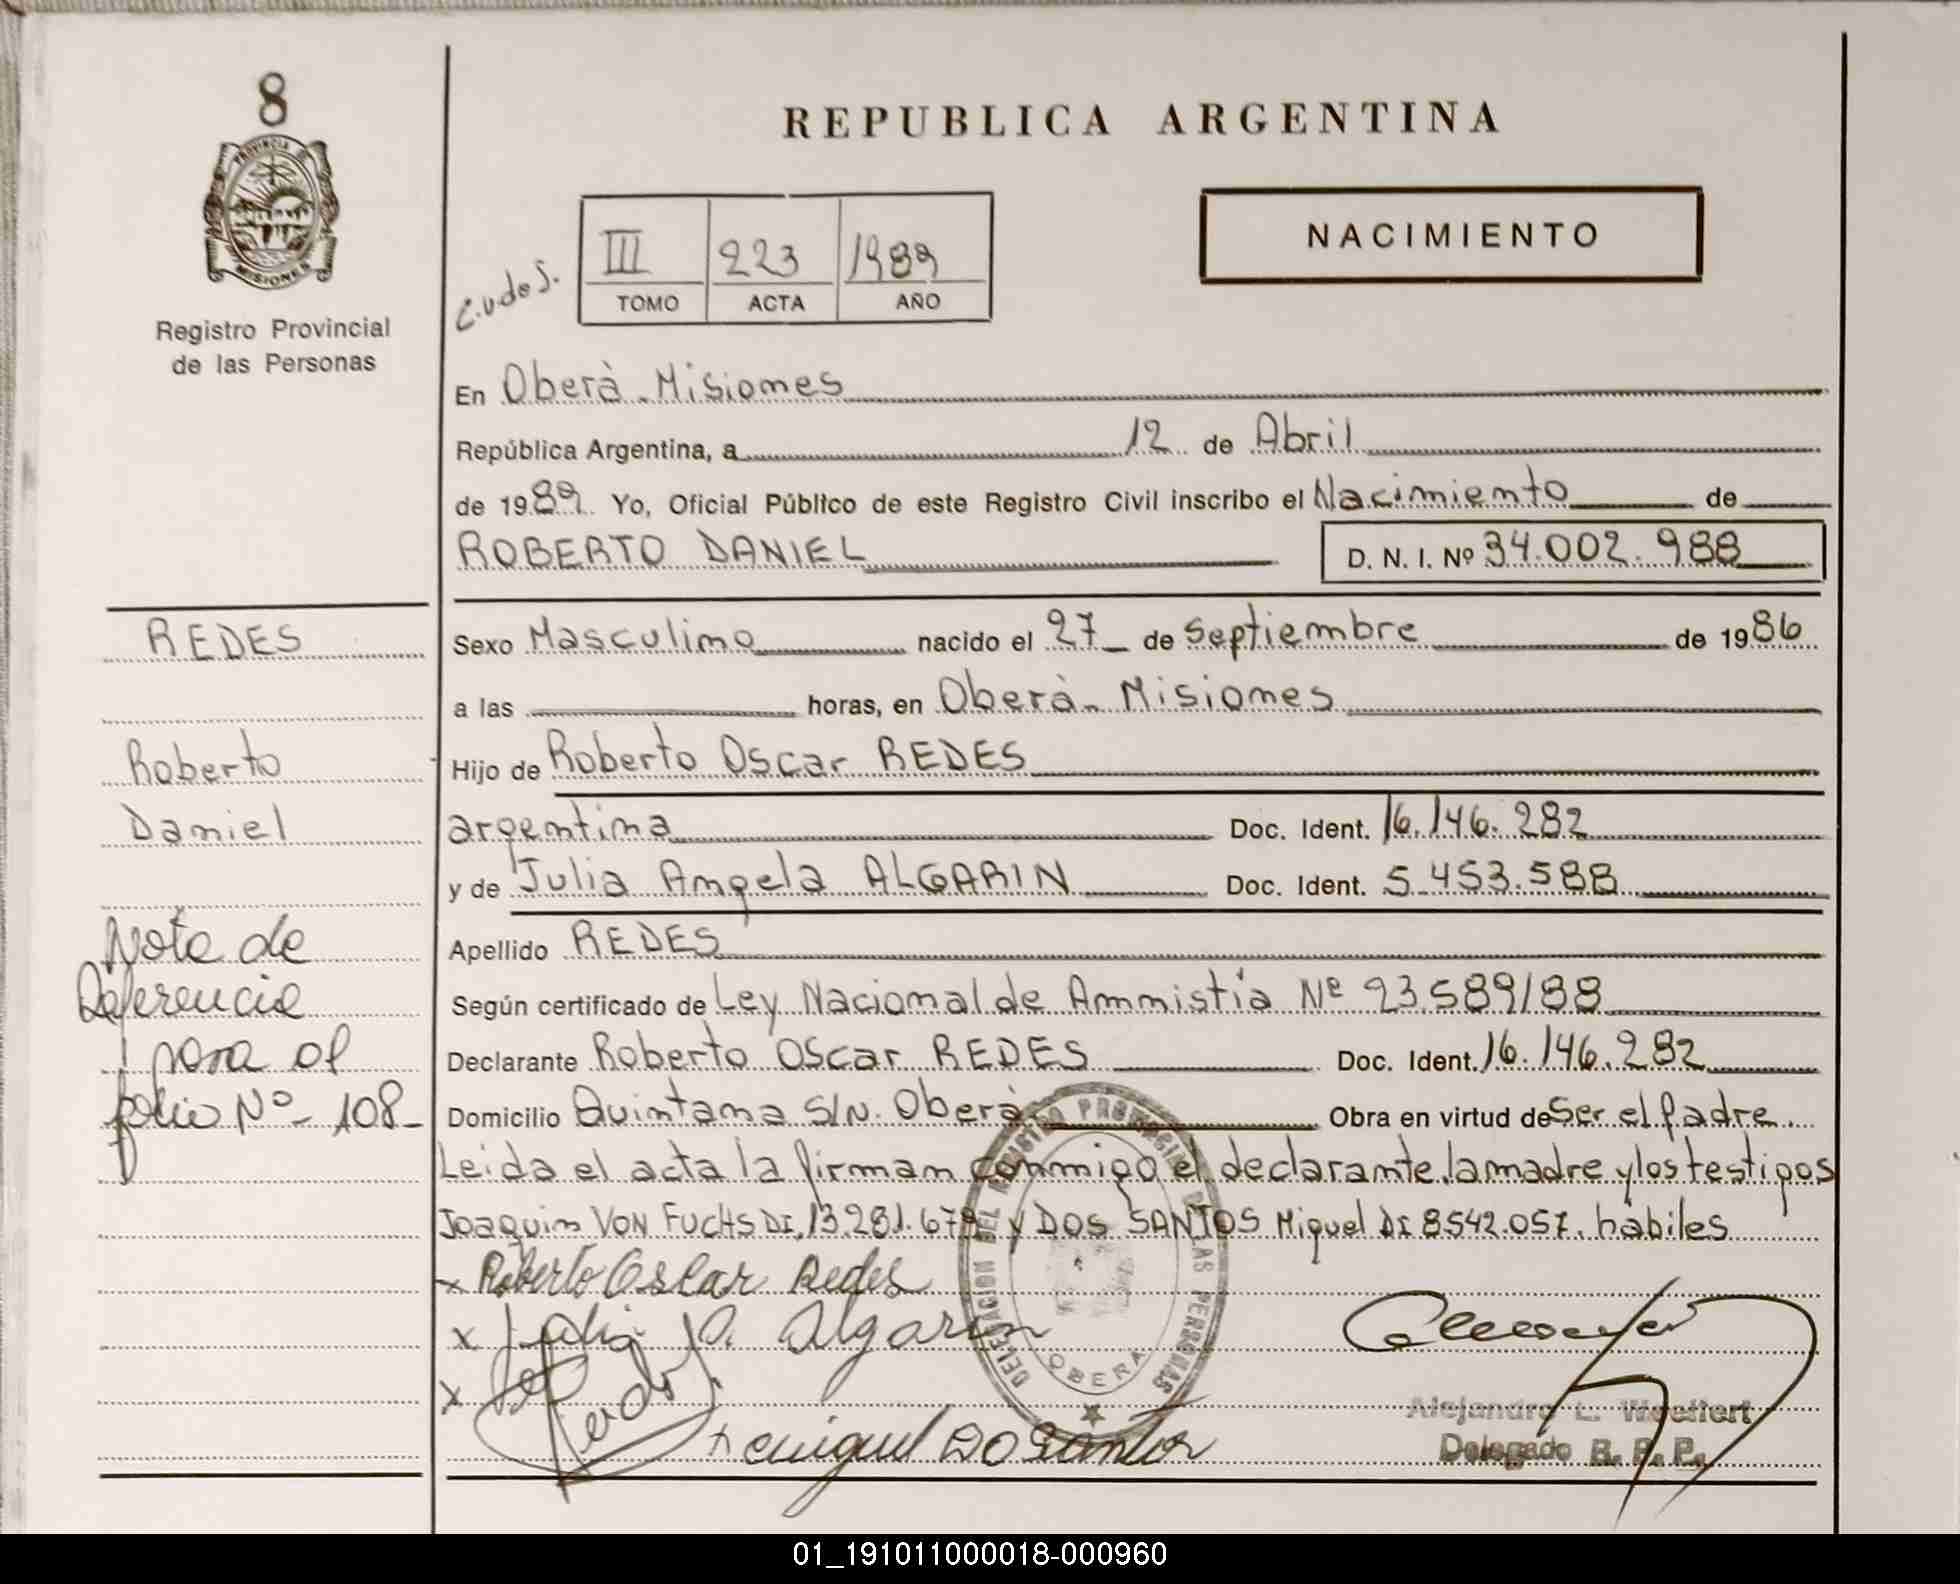 8
PROVINCIA DE
MISIONES
Registro Provincial
de las Personas
REPUBLICA ARGENTINA
NACIMIENTO
III 223 1989
TOMO ACTA AÑO
En Oberà - Misiones
República Argentina, a 12 de Abril
de 1989 Yo, Oficial Público de este Registro Civil inscribo el Nacimiento de
ROBERTO DANIEL D. N. I. Nº 34.002.988
REDES
Roberto
Daniel
Nota de
Referencia
para al
folio Nº - 108 -
Sexo Masculino nacido el 27 de Septiembre de 1986
a las horas, en Oberà - Misiones
Hijo de Roberto Oscar REDES
argentina Doc. Ident. 16.146.282
y de Julia Angela ALGARIN Doc. Ident. 5.453.588
Apellido REDES
Según certificado de Ley Nacional de Amnistía Nº 23.589/88
Declarante Roberto Oscar REDES Doc. Ident. 16.146.282
Domicilio Quintana S/N. Oberà Obra en virtud de Ser el Padre.
Leida el acta la firman conmigo el declarante, la madre y los testigos
Joaquin VON FUCHS DI. 13.281.679 y DOS SANTOS Miguel DI 8542.057. hàbiles
x Roberto Oscar Redes
x Julia A. Algarin
x
Miguel Do Santos
DELEGACION DEL REGISTRO PROVINCIAL DE LAS PERSONAS
OBERA
Alejandro L. Woellert
Delegado R. P. P.
01_191011000018-000960